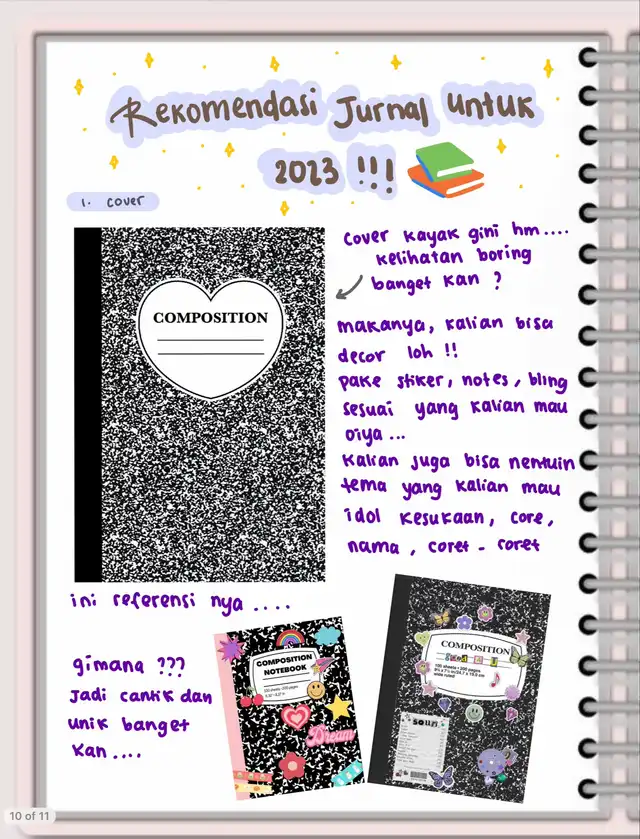 Rekomendasi Jurnal untuk
2023 !!!
1. cover
COMPOSITION
cover kayak gini hm....
kelihatan boring
banget kan ?
makanya, kalian bisa
decor loh !!
pake stiker, notes, bling
sesuai yang kalian mau
oiya ...
kalian juga bisa nentuin
tema yang kalian mau
idol kesukaan, core,
nama, coret - coret
ini referensi nya ....
gimana ???
Jadi cantik dan
unik banget
kan ....
COMPOSITION
NOTEBOOK
Dream
COMPOSITION
100 sheets • 200 pages
wide ruled
10 of 11